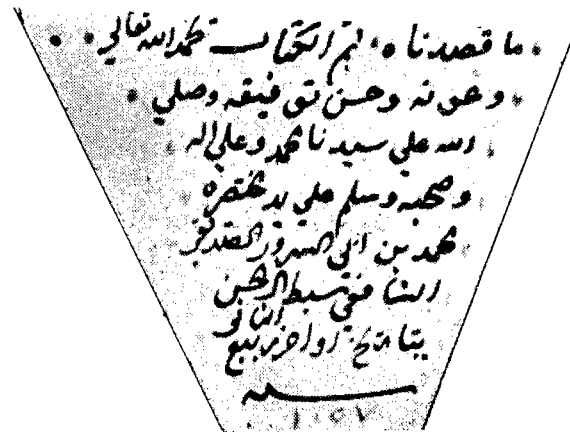 ما قصدنا ه تم الكتاب بحمد الله تعالى
وعونه وحسن توفيقه وصلي
الله علي سيدنا محمد وعلي اله
وصحبه وسلم علي يد مختصره
محمد بن ابي السرور الصديقي
الشافعي سبط ال الحسن
بتاريخ اواخر ربيع الثاني
سنة
١٠٥٧